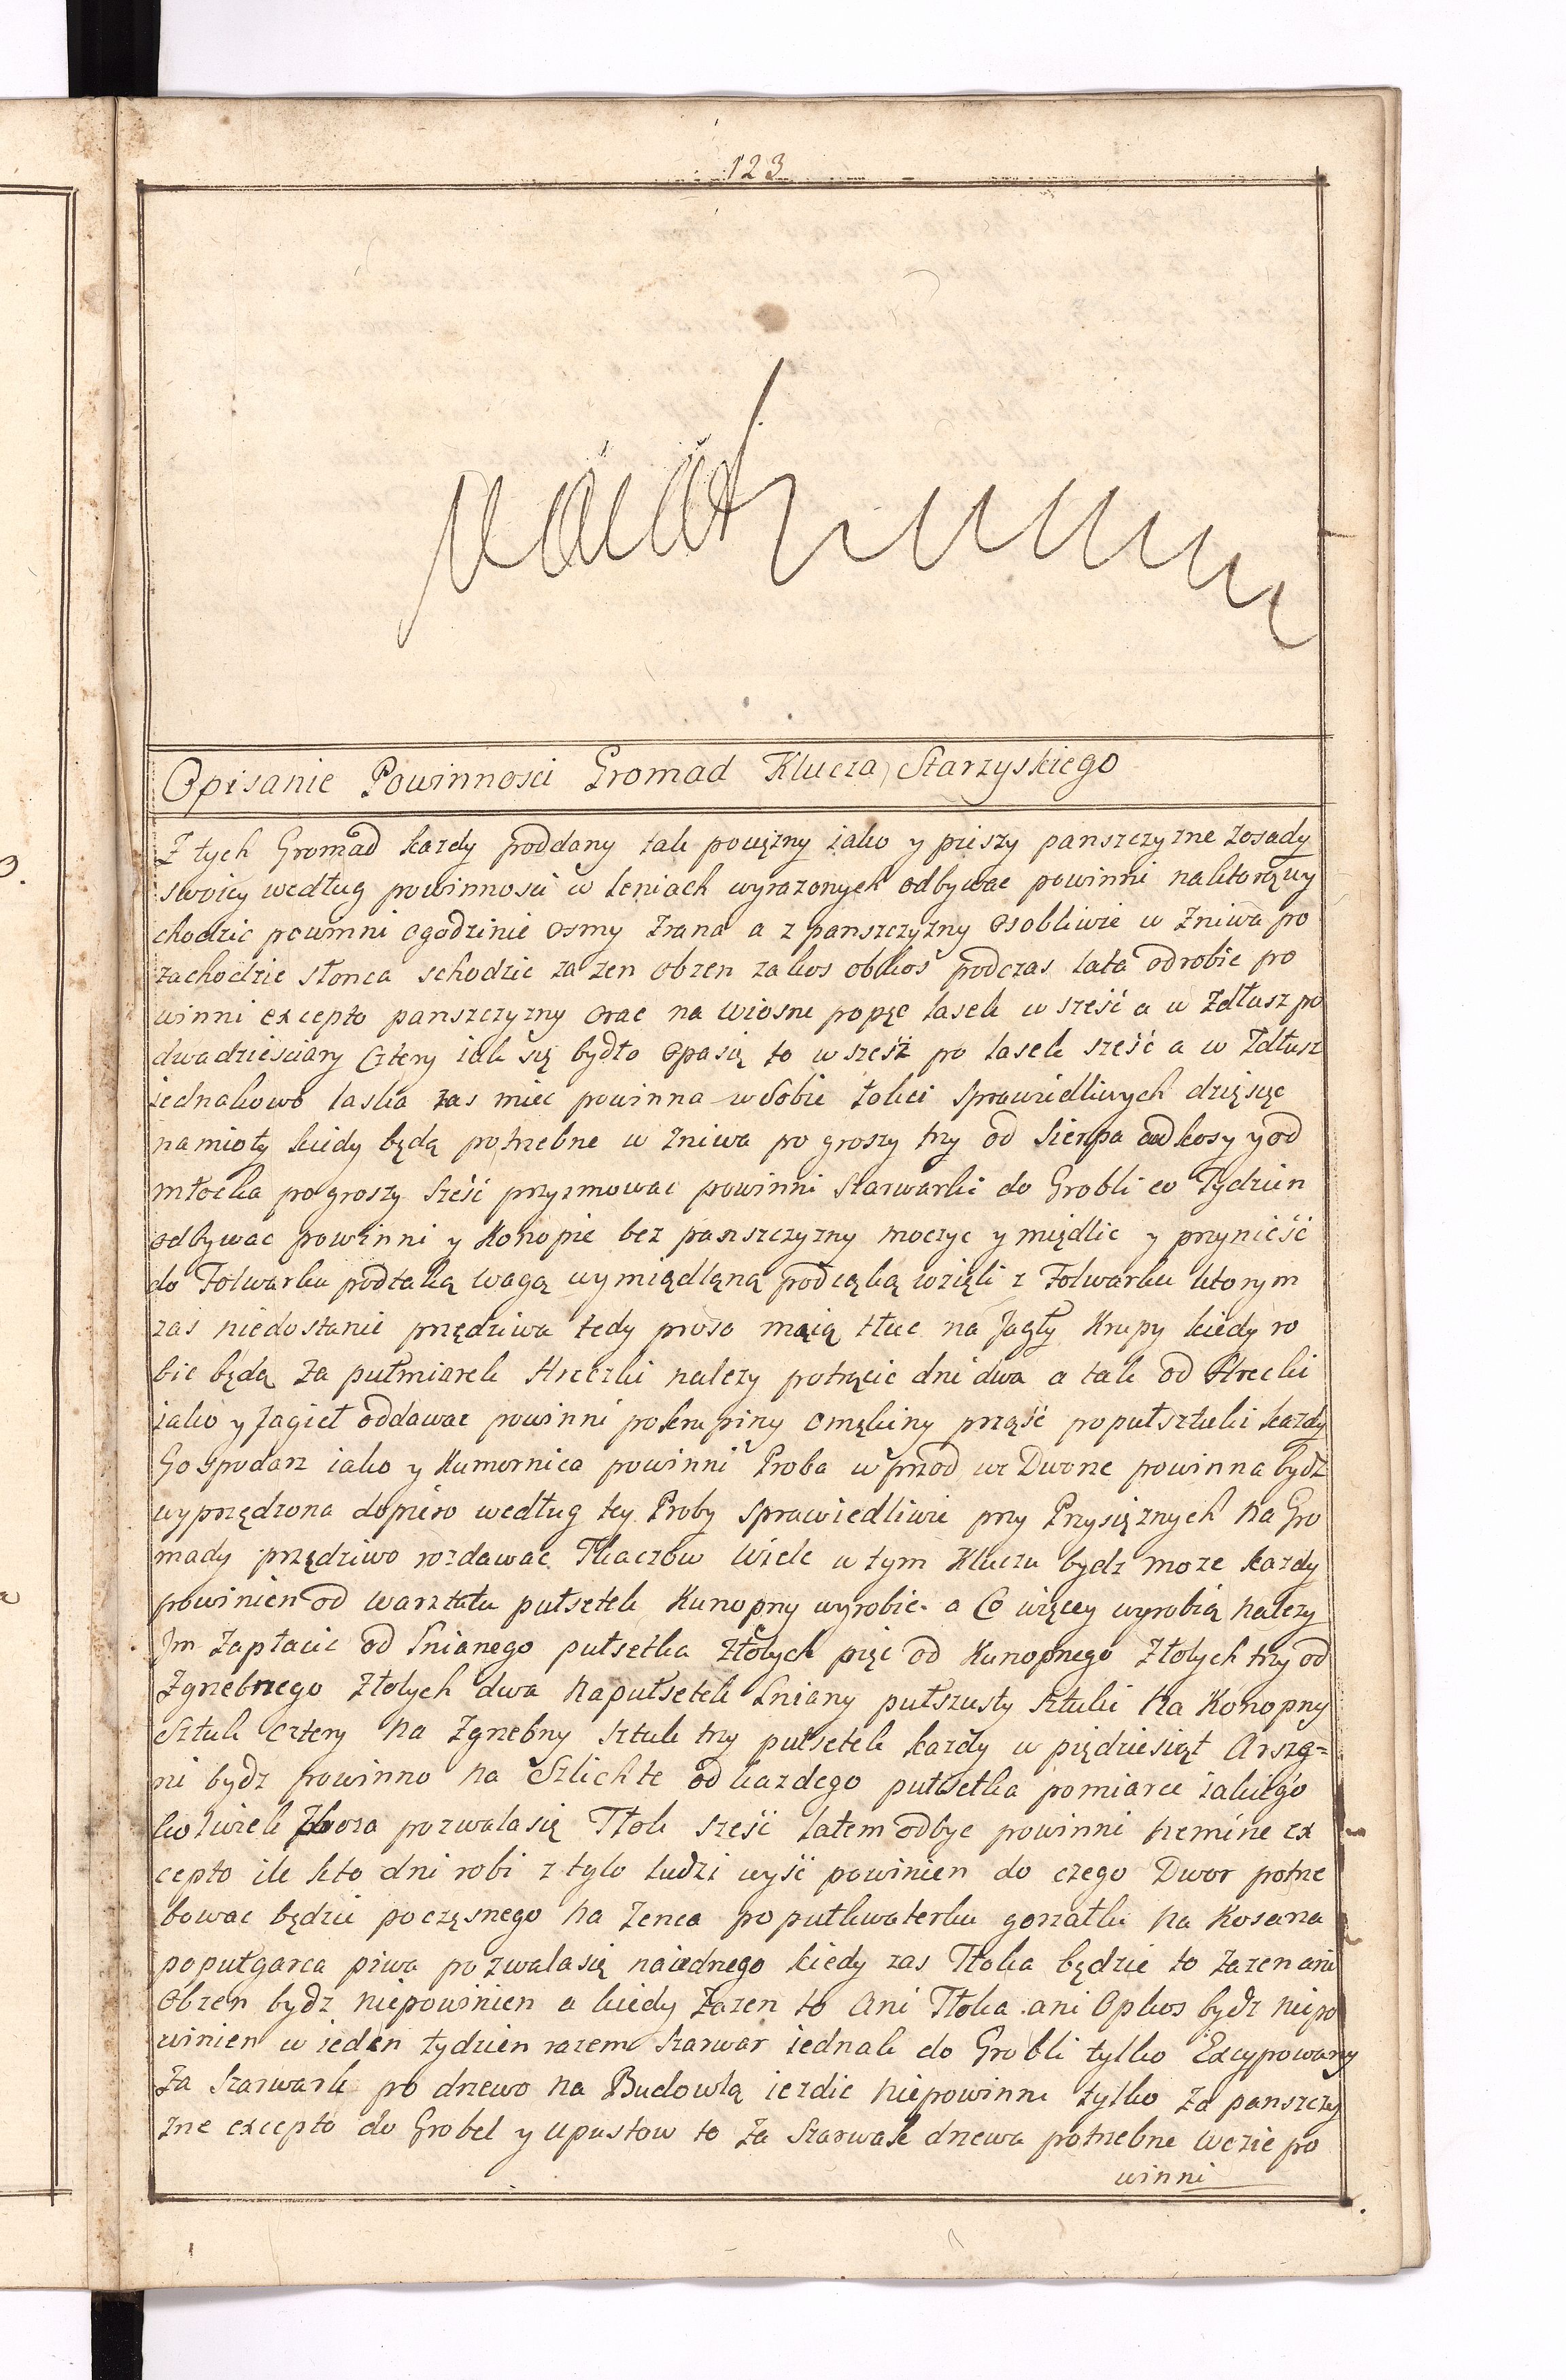 123
Opisanie Powinnosci Gromad Klucza Starzyskiego
Z tych Gromad kazdy poddany tak powęzny iako y pieszy panszczyzne zosady
swoiey według powinnosci w leniach wyrazonych odbywac powinni naktorąwy
chodzic powinni ogodzinie osmy zrana a z panszczyzny osobliwie w Zniwa po
zachodzie słonca schodzic zazen obzen zakos obkos podczas lata odrobic po
winni excepto panszczyzny orac na wiosne popęc lasek w sześć a w Zdłusz po
dwadziesciary Cztery iak się bydło opasią to w sześź po lasek sześć a w Zdłusz
iednakowo laska zas miec powinna w Sobie łokci sprawiedliwych dzięsięc
namioty kiedy będą potrzebne w zniwa po groszy trzy od sierpa od kosy y od
młocka po groszy sześć przyimowac powinni Szarwarki do Grobli co Tydzien
odbywac powinni y Konopie bez panszczyzny moczyc y międlic y przynieść
do Folwarku podtaką wagą wymiądląną podiąką wzięli z Folwarku ktorym
zas niedostanie przędziwa tedy proso maią tłuc na Jagły Krupy kiedy ro
bic będą za pułmiarek Hreczki nalezy potrącic dni dwa a tak od Hreczki
iako y Jagieł oddawac powinni pokrupiny omękiny prząść popułsztuki kazdy
Gospodarz iako y Kumornica powinni Proba wprzod we Dworze powinna bydz
wyprzędzona dopiero według tey Proby sprawiedliwie przy Przysięznych na Gro
mady przędziwo rozdawac Tkaczow wiele w tym Kluczu bydz moze kazdy
powinien od warztatu pułsetek Kunopny wyrobic a Co więcey wyrobią nalezy
Im zapłacic od Lnianego pułsetka Złotych pięc od Kunopnego Złotych trzy od
Zgrzebnego Złotych dwa napułsetek Lniany pułszusty sztuki na Konopny
Sztuk cztery na Zgrzebny sztuk trzy pułsetek kazdy w piędziesiąt Arszę=
ni bydz powinno na Szlichte od kazdego pułsetka pomiarce iakiego
kolwiek zboza pozwalasię Tłok sześć latem odbyc powinni nemine ex
cepto ile kto dni robi z tylo ludzi wyść powinien do czego Dwor potrze
bowac będzie poczęsnego na Zenca po pułkwaterku gorzałki na Kosarza
popułgarca piwa pozwalasię naiednego kiedy zas Tłoka będzie to zazen ani
obzen bydz niepowinien a kiedy zazen to ani Tłoka ani Opkos bydz niepo
winien w ieden tydzien razem szarwar iednak do Grobli tylko Excypowany
Za Szarwark po drzewo na Budowlą iezdic niepowinni tylko za panszczy
zne excepto do Grobel y upustow to za Szarwark drzewa potrzebne wezic po
winni